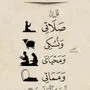 قُلْ إِنَّ
صَلَاتِي
وَنُسُكِي
وَمَحْيَايَ
وَمَمَاتِي